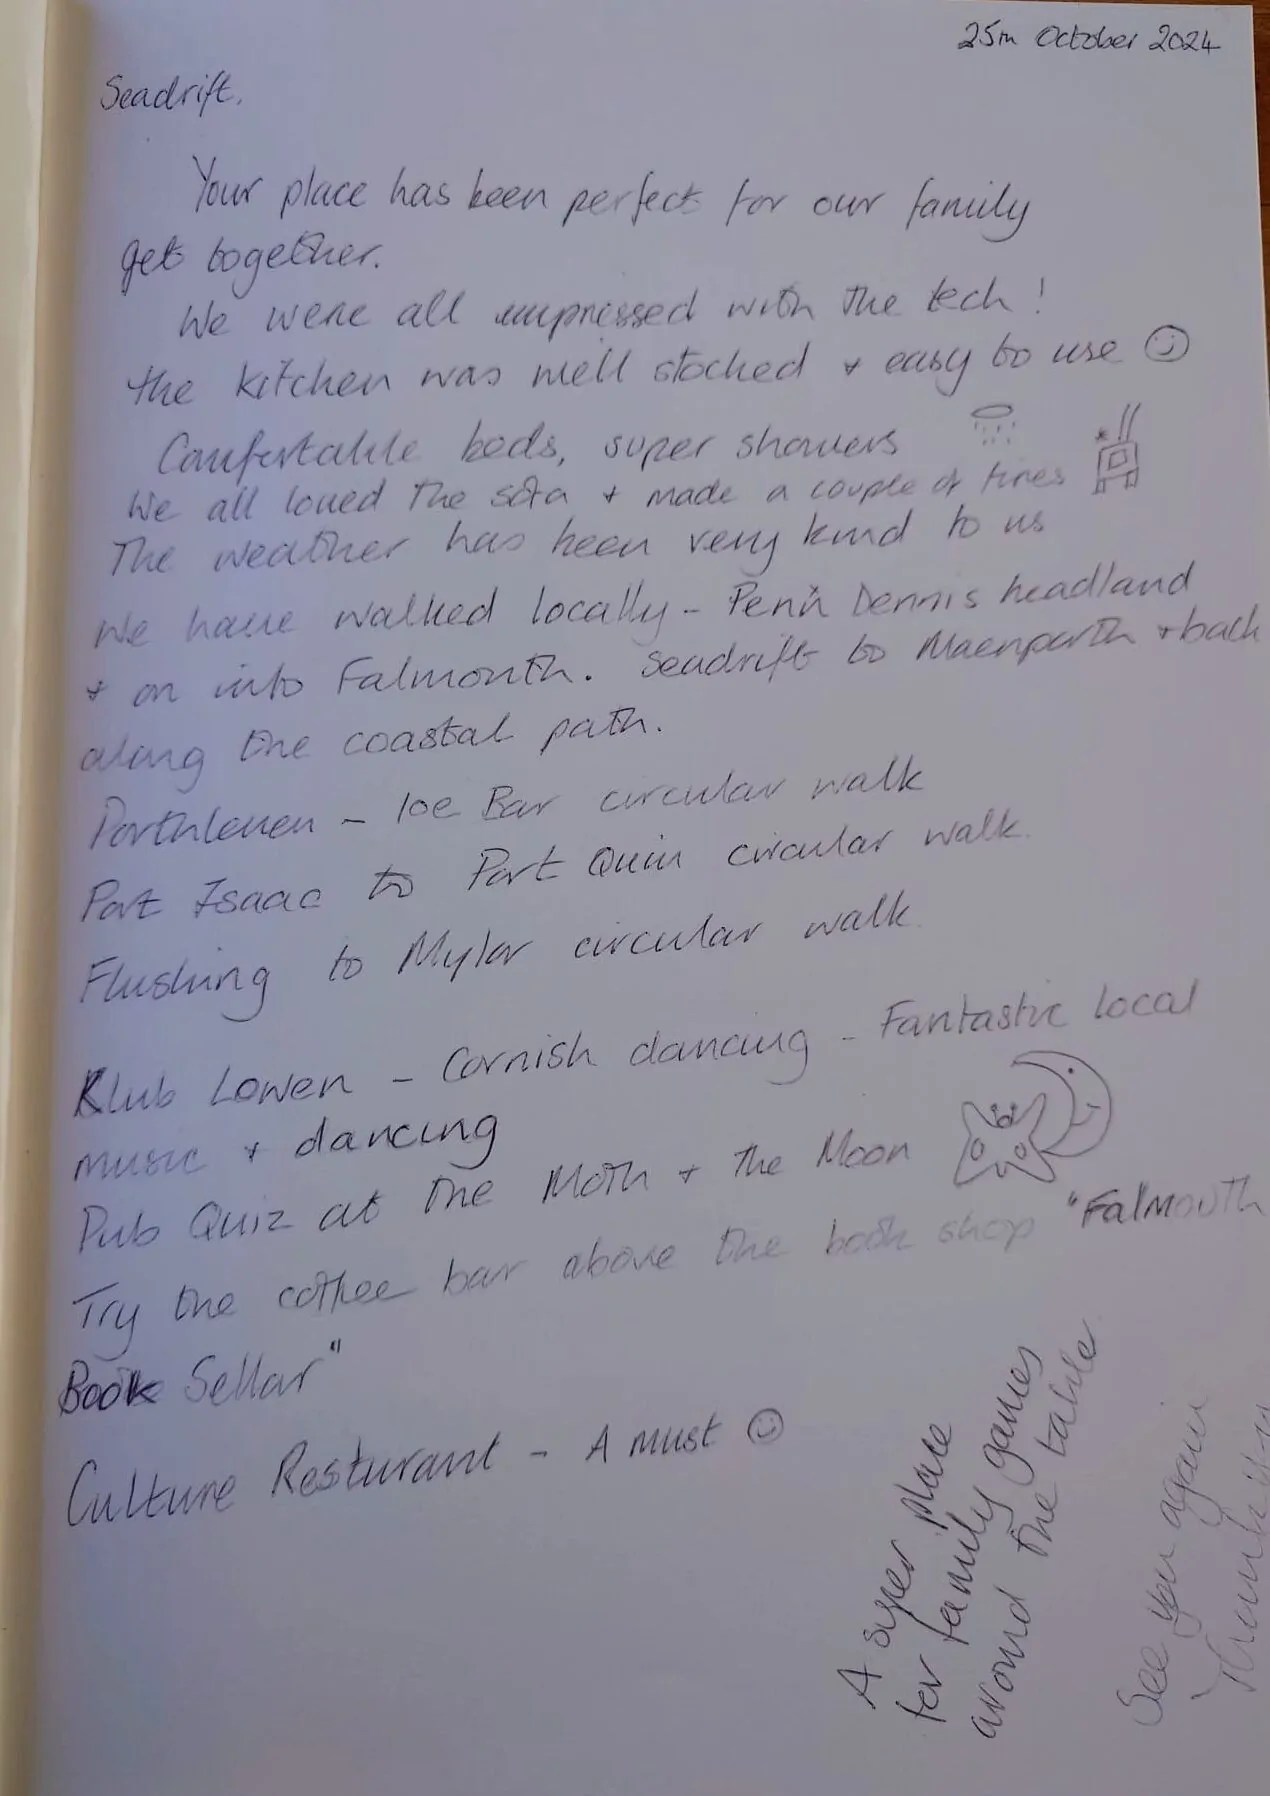 25th October 2024
Seadrift.
Your place has been perfect for our family
get together.
We were all impressed with the tech!
the kitchen was well stocked + easy to use ☺
Comfortable beds, super showers
We all loved the sofa + made a couple of fires
The weather has been very kind to us
We have walked locally - Penn Dennis headland
+ on into Falmouth. Seadrift to Maenporth + back
along the coastal path.
Porthleven - loe Bar circular walk
Port Isaac to Port Quin circular walk.
Flushing to Mylor circular walk.
Klub Lowen - Cornish dancing - Fantastic local
music + dancing
Pub Quiz at the Moth + the Moon
Try the coffee bar above the book shop "Falmouth
Book Sellar"
Culture Resturant - A must ☺
A super place
for family games
around the table.
See you again
Thank you